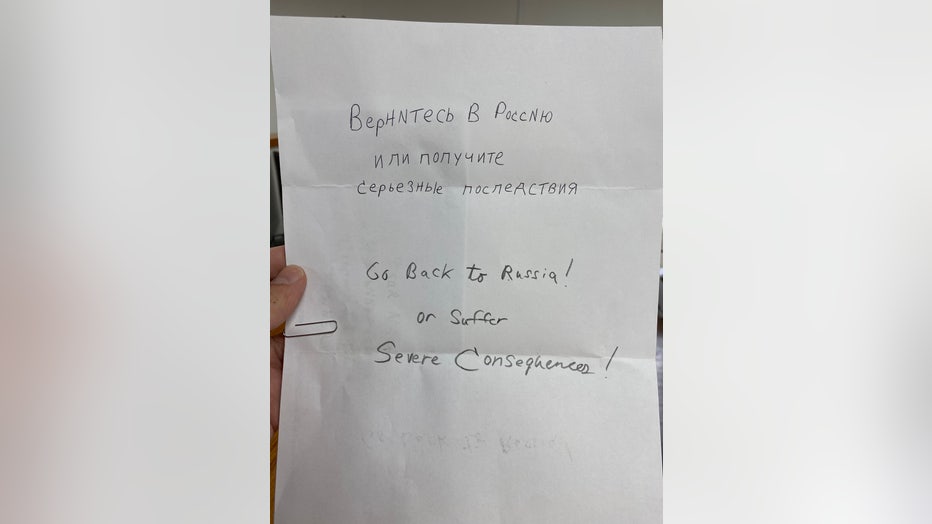 ВерНNтесь в РоссNю
или получите
серьезные последствия
Go Back to Russia!
or Suffer
Severe Consequences!